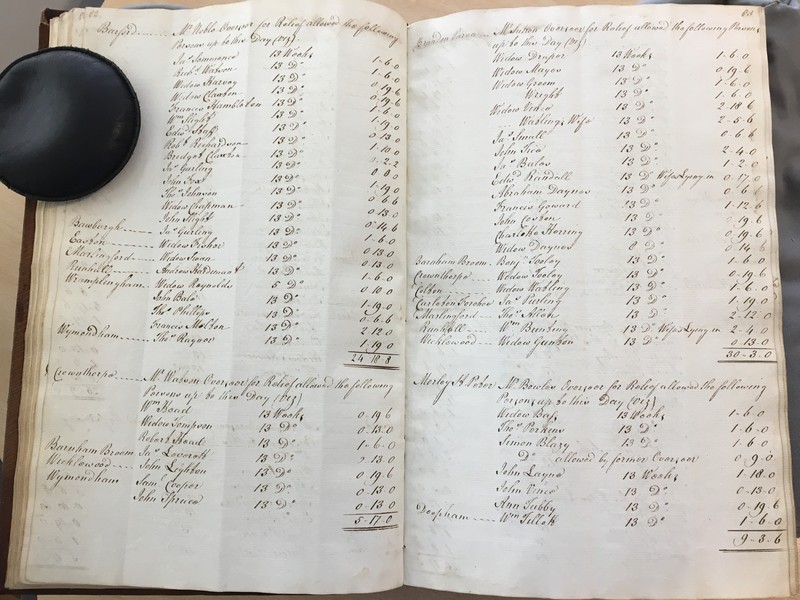 Barford Mr Noble Overseer for Relief allowed the following
Persons up to this Day (Viz)
13 Weeks 1-6-0
Robt Watson 13 Do 1-6-0
Widow Harvey 13 Do 0-19-6
Widow Clawton 13 Do 0-19-6
Francis Hambleton 13 Do 1-6-0
Wm Slight 13 Do 1-19-0
Edwd 13 Do 0-13-0
Robt Richardson 13 Do 1-10-0
Bridget Clawton 13 Do 0-2-2
Jas Gurling 13 Do
John Fox 13 Do 1-19-0
Thos Johnson 13 Do
Widow Chapman 13 Do 0-13-0
John Slight 13 Do 0-14-6
Bawburgh Jas Gurling 13 Do 1-6-0
Easton Widow Fisher 13 Do 0-13-0
Marlingford Widow Swan 13 Do 0-13-0
Runhall Andrew 13 Do 1-6-0
Wramplingham Widow Reynolds 5 Do 0-10-0
John Bale 13 Do 1-19-0
Thos Phillips 13 Do 0-6-6
Francis Molton 13 Do 2-12-0
Wymondham Thos Raynor 13 Do 1-19-0
24-18-8
Crownthorpe Mr Watson Overseer for Relief allowed the following
Persons up to this Day (Viz)
Wm Head 13 Weeks 0-19-6
Widow Sampson 13 Do 0-13-0
Robert Head 13 Do 1-6-0
Barnham Broom Jas 13 Do 0-13-0
Wicklewood John Lighton 13 Do 0-19-6
Wymondham Saml Cooper 13 Do 0-13-0
John Spruce 13 Do 0-13-0
5-17-0
Mr Sutton Overseer for Relief allowed the following Persons
up to this Day (Viz)
Widow Draper 13 Weeks 1-6-0
Widow Mayes 13 Do 0-19-6
Widow Groom 13 Do 1-6-0
Wright 13 Do 1-6-0
Widow Vince 13 Do 2-18-6
Watlings Wife 13 Do 2-5-6
Jas Small 13 Do 0-6-6
John Tice 13 Do 2-4-0
Jas Bales 13 Do 1-2-0
Edwd Rundall 13 Do Wifes Lying in 0-17-0
Abraham Daynes 13 Do 0-6-6
Francis Goward 13 Do 1-12-6
John Coston 13 Do 0-19-6
Charlotte Herring 13 Do 0-19-6
Widow Daynes 8 Do 0-14-6
Barnham Broom Benjn Tooley 13 Do 1-6-0
Crownthorpe Widow Tooley 13 Do 0-19-6
Colton Widow Watling 13 Do 1-6-0
Carleton Forehoe Jas Verling 13 Do 1-19-0
Marlingford Thos Allen 13 Do 2-12-0
Runhall Wm Bunting 13 Do Wifes Lying in 2-4-0
Wicklewood Widow Gunton 13 Do 0-13-0
30-3-0
Morley St Peter Mr Barclay Overseer for Relief allowed the following
Persons up to this Day (Viz)
Widow Bass 13 Weeks 1-6-0
Thos Perkins 13 Do 1-6-0
Simon Blazy 13 Do 1-6-0
Do allowed by former Overseer 0-9-0
John Layne 13 Weeks 1-18-0
John Vince 13 Do 0-13-0
Ann Tubby 13 Do 0-19-6
Deopham Wm Tillett 13 Do 1-6-0
9-3-6